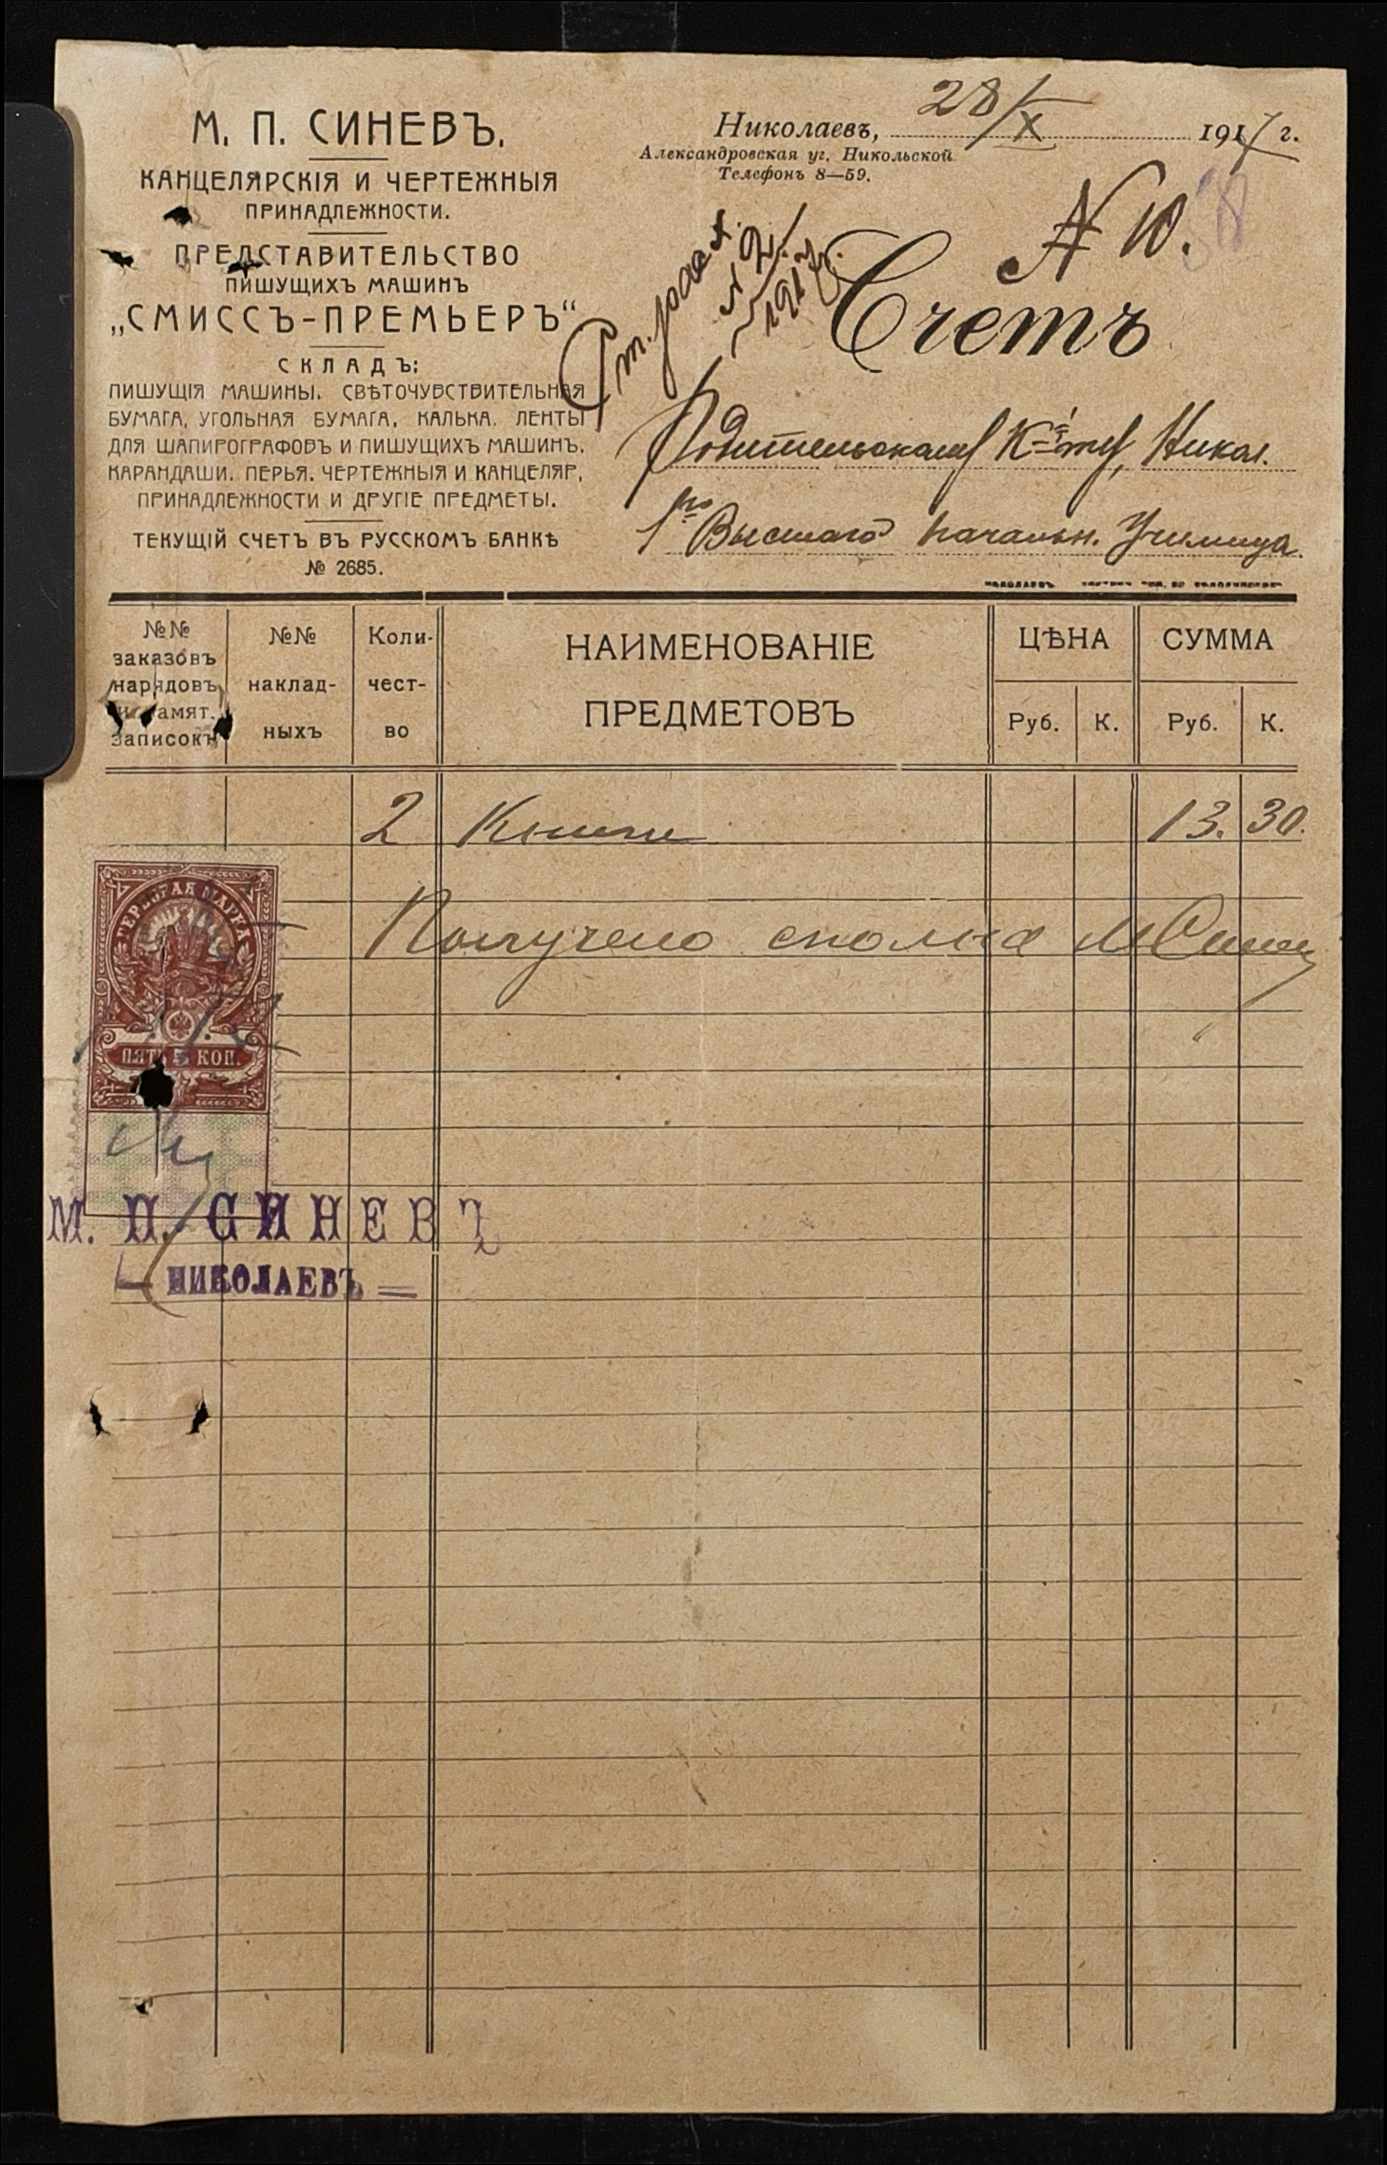 М. П. СИНЕВЪ.
КАНЦЕЛЯРСКІЯ И ЧЕРТЕЖНЫЯ
ПРИНАДЛЕЖНОСТИ.
ПРЕДСТАВИТЕЛЬСТВО
ПИШУЩИХЪ МАШИНЪ
„СМИССЪ-ПРЕМЬЕРЪ“
СКЛАДЪ:
ПИШУЩІЯ МАШИНЫ. СВѢТОЧУВСТВИТЕЛЬНАЯ
БУМАГА, УГОЛЬНАЯ БУМАГА, КАЛЬКА. ЛЕНТЫ
ДЛЯ ШАПИРОГРАФОВЪ И ПИШУЩИХЪ МАШИНЪ.
КАРАНДАШИ. ПЕРЬЯ. ЧЕРТЕЖНЫЯ И КАНЦЕЛЯР,
ПРИНАДЛЕЖНОСТИ И ДРУГІЕ ПРЕДМЕТЫ.
ТЕКУЩІЙ СЧЕТЪ ВЪ РУССКОМЪ БАНКѢ
№ 2685.
Николаевъ, 28/X 1917 г.
Александровская уг. Никольской
Телефонъ 8—59.
N 10.
Ст. расх.
N 2
1917 г.
Счетъ
Родительскому К-ту, Никол.
1го Высшаго Начальн. Училища
№№ заказовъ нарядовъ и памят. записокъ
№№ наклад-ныхъ
Коли-чест-во
НАИМЕНОВАНІЕ ПРЕДМЕТОВЪ
ЦѢНА
СУММА
Руб. К. Руб. К.
2 Книги 13. 30.
Получено сполна МСинев
ГЕРБОВАЯ МАРКА
ПЯТЬ 5 КОП.
М. П. СИНЕВЪ
НИКОЛАЕВЪ